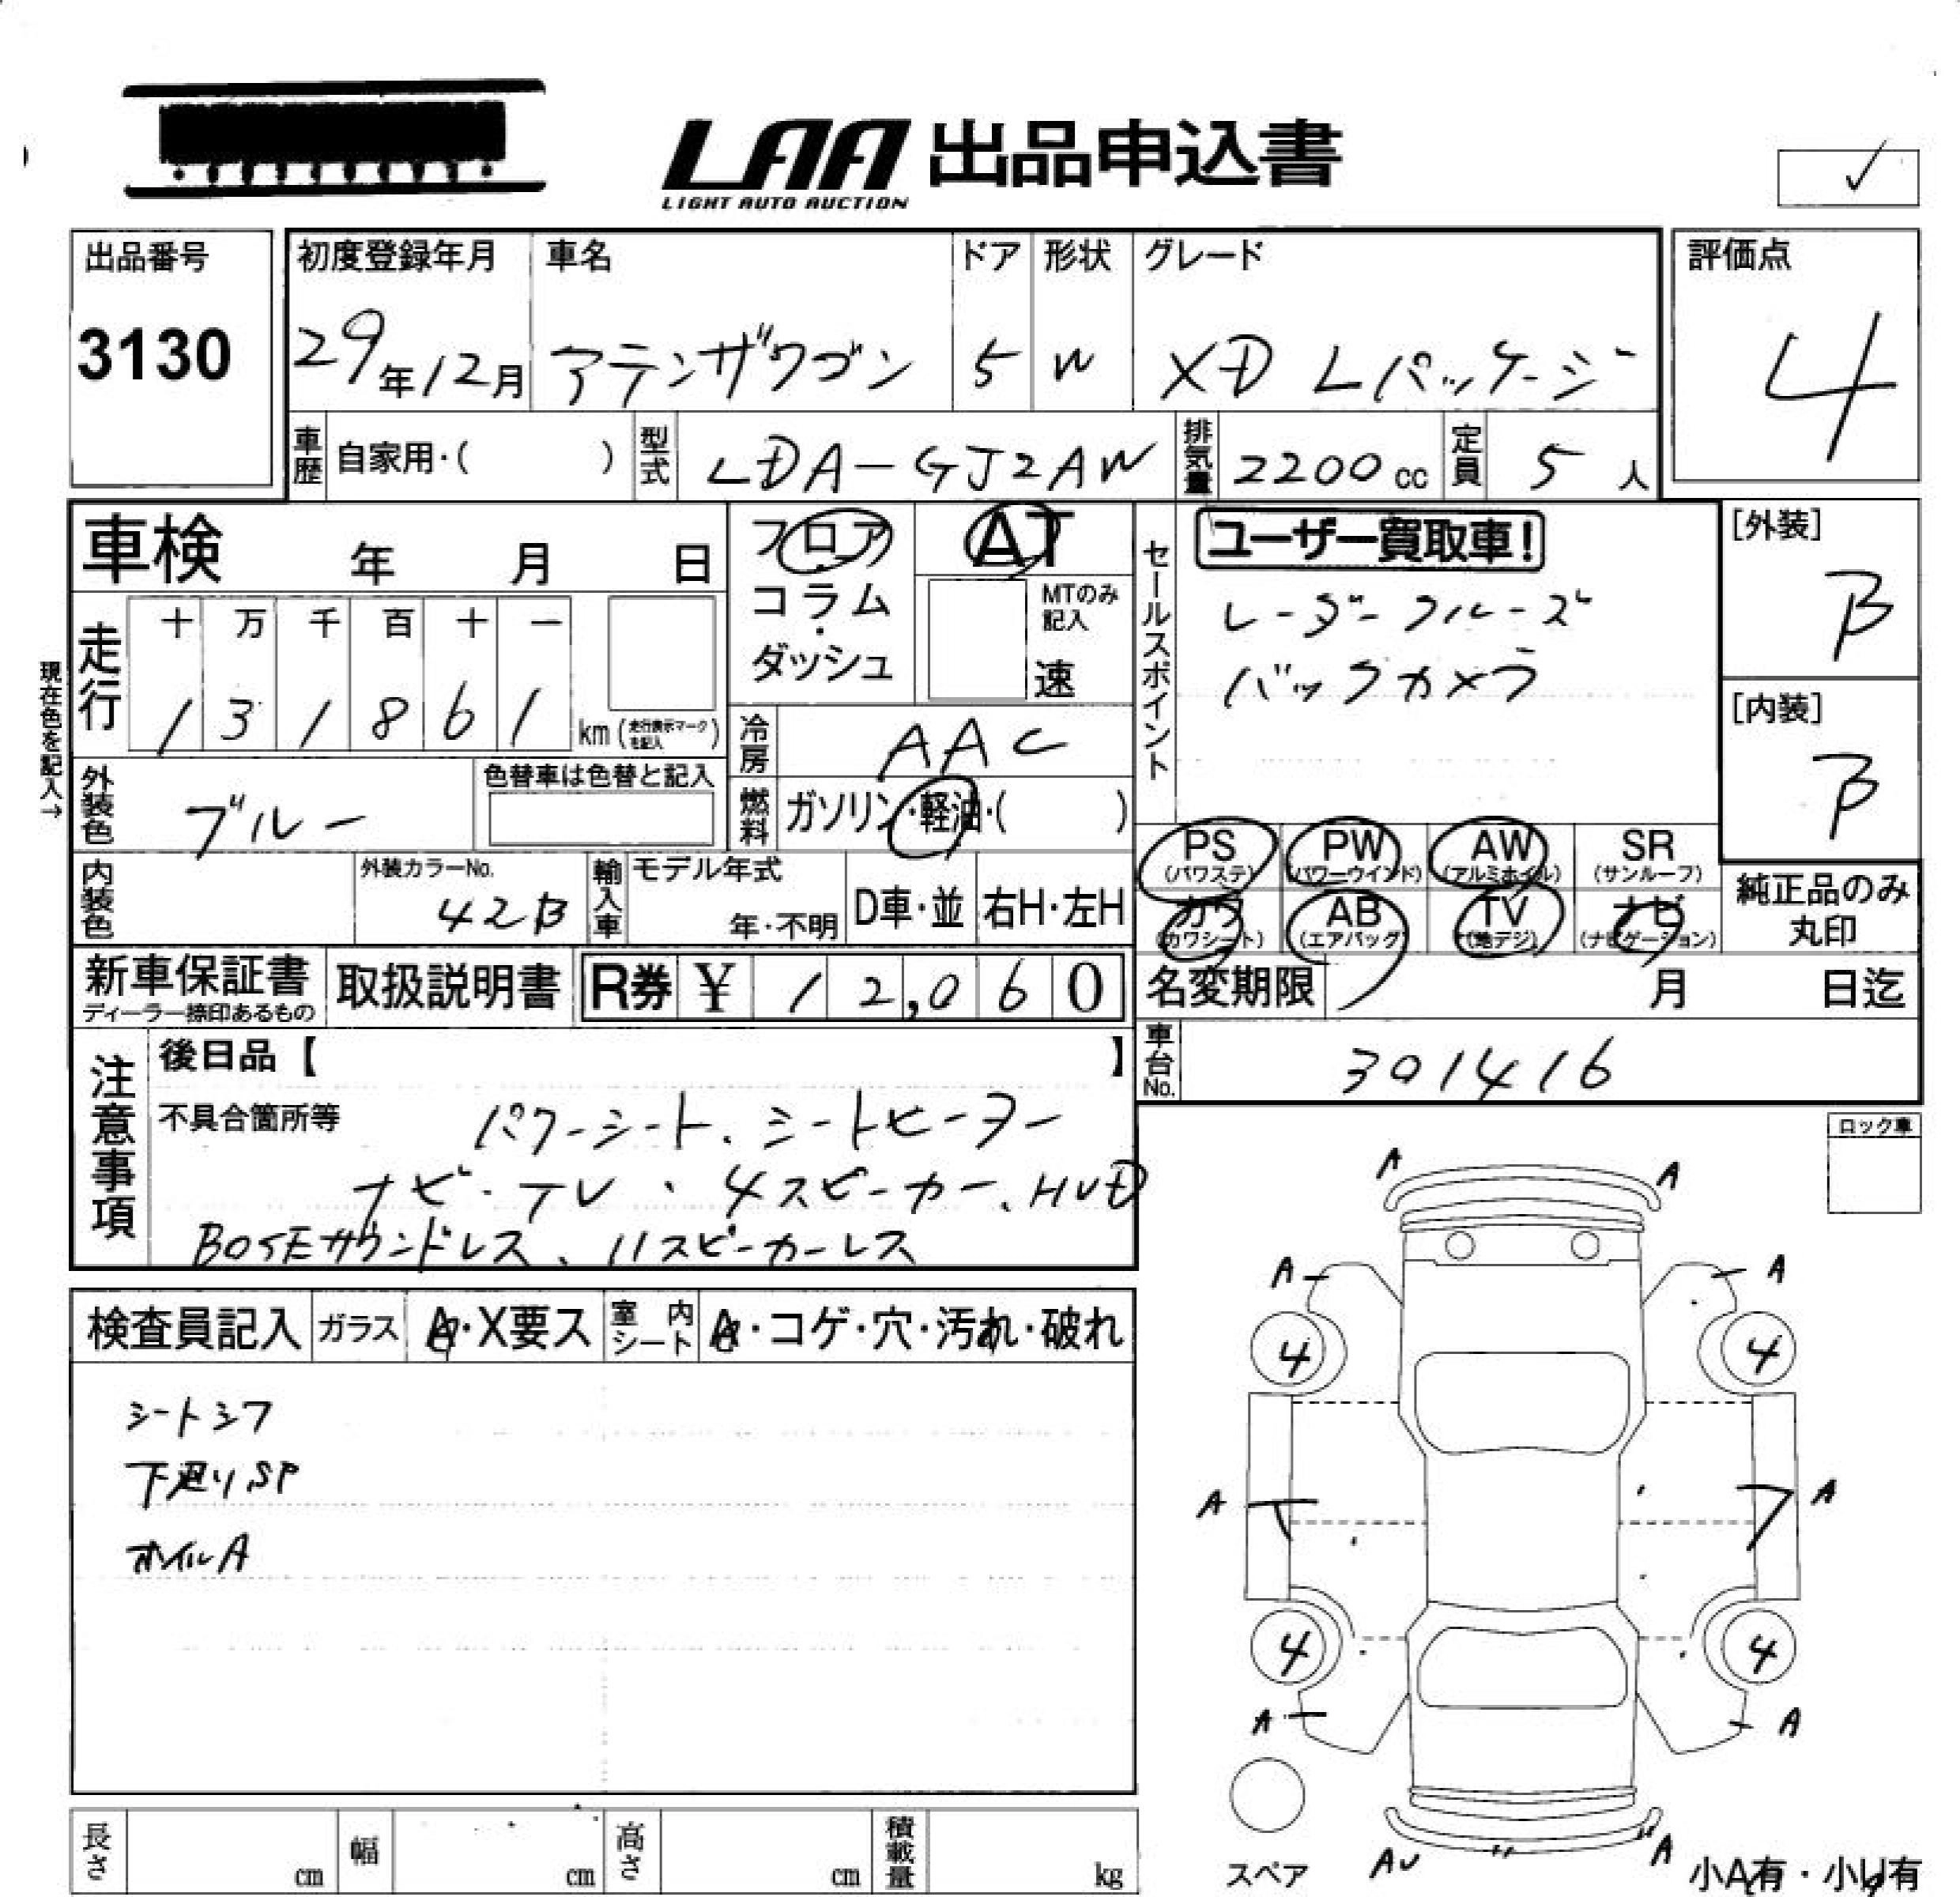 LAA 出品申込書
LIGHT AUTO AUCTION
出品番号
3130
初度登録年月
29年12月
車名
アテンザワゴン
ドア
5
形状
W
グレード
XD Lパッケージ
評価点
4
車歴 自家用・( )
型式 LDA-GJ2AW
排気量 2200cc
定員 5人
車検 年 月 日
フロア・コラム・ダッシュ
AT
MTのみ記入
速
セールスポイント
ユーザー買取車!
レーダークルーズ
バックカメラ
[外装]
B
[内装]
B
現在色を記入→
走行
十 万 千 百 十 一
1 3 1 8 6 1 km(走行表示マークを記入)
冷房 AAC
外装色 ブルー
色替車は色替と記入
燃料 ガソリン・軽油・( )
内装色
外装カラーNo.
42B
輸入車
モデル年式
年・不明
D車・並
右H・左H
PS (パワステ)
PW (パワーウインド)
AW (アルミホイル)
SR (サンルーフ)
カワ (カワシート)
AB (エアバッグ)
TV (地デジ)
ナビ (ナビゲーション)
純正品のみ丸印
新車保証書
ディーラー捺印あるもの
取扱説明書
R券 ¥ 12,060
名変期限 月 日迄
車台No. 301416
注意事項
後日品【 】
不具合箇所等
パワーシート、シートヒーター
ナビ・TV、4スピーカー、HUD
BOSEサウンドレス、11スピーカーレス
ロック車
検査員記入
ガラス A・X要ス
室内シート A・コゲ・穴・汚れ・破れ
シートシワ
下廻りSP
ホイルA
A A
A A
4 4
A A
4 4
A A
スペア
AU A
小A有・小U有
長さ cm
幅 cm
高さ cm
積載量 kg